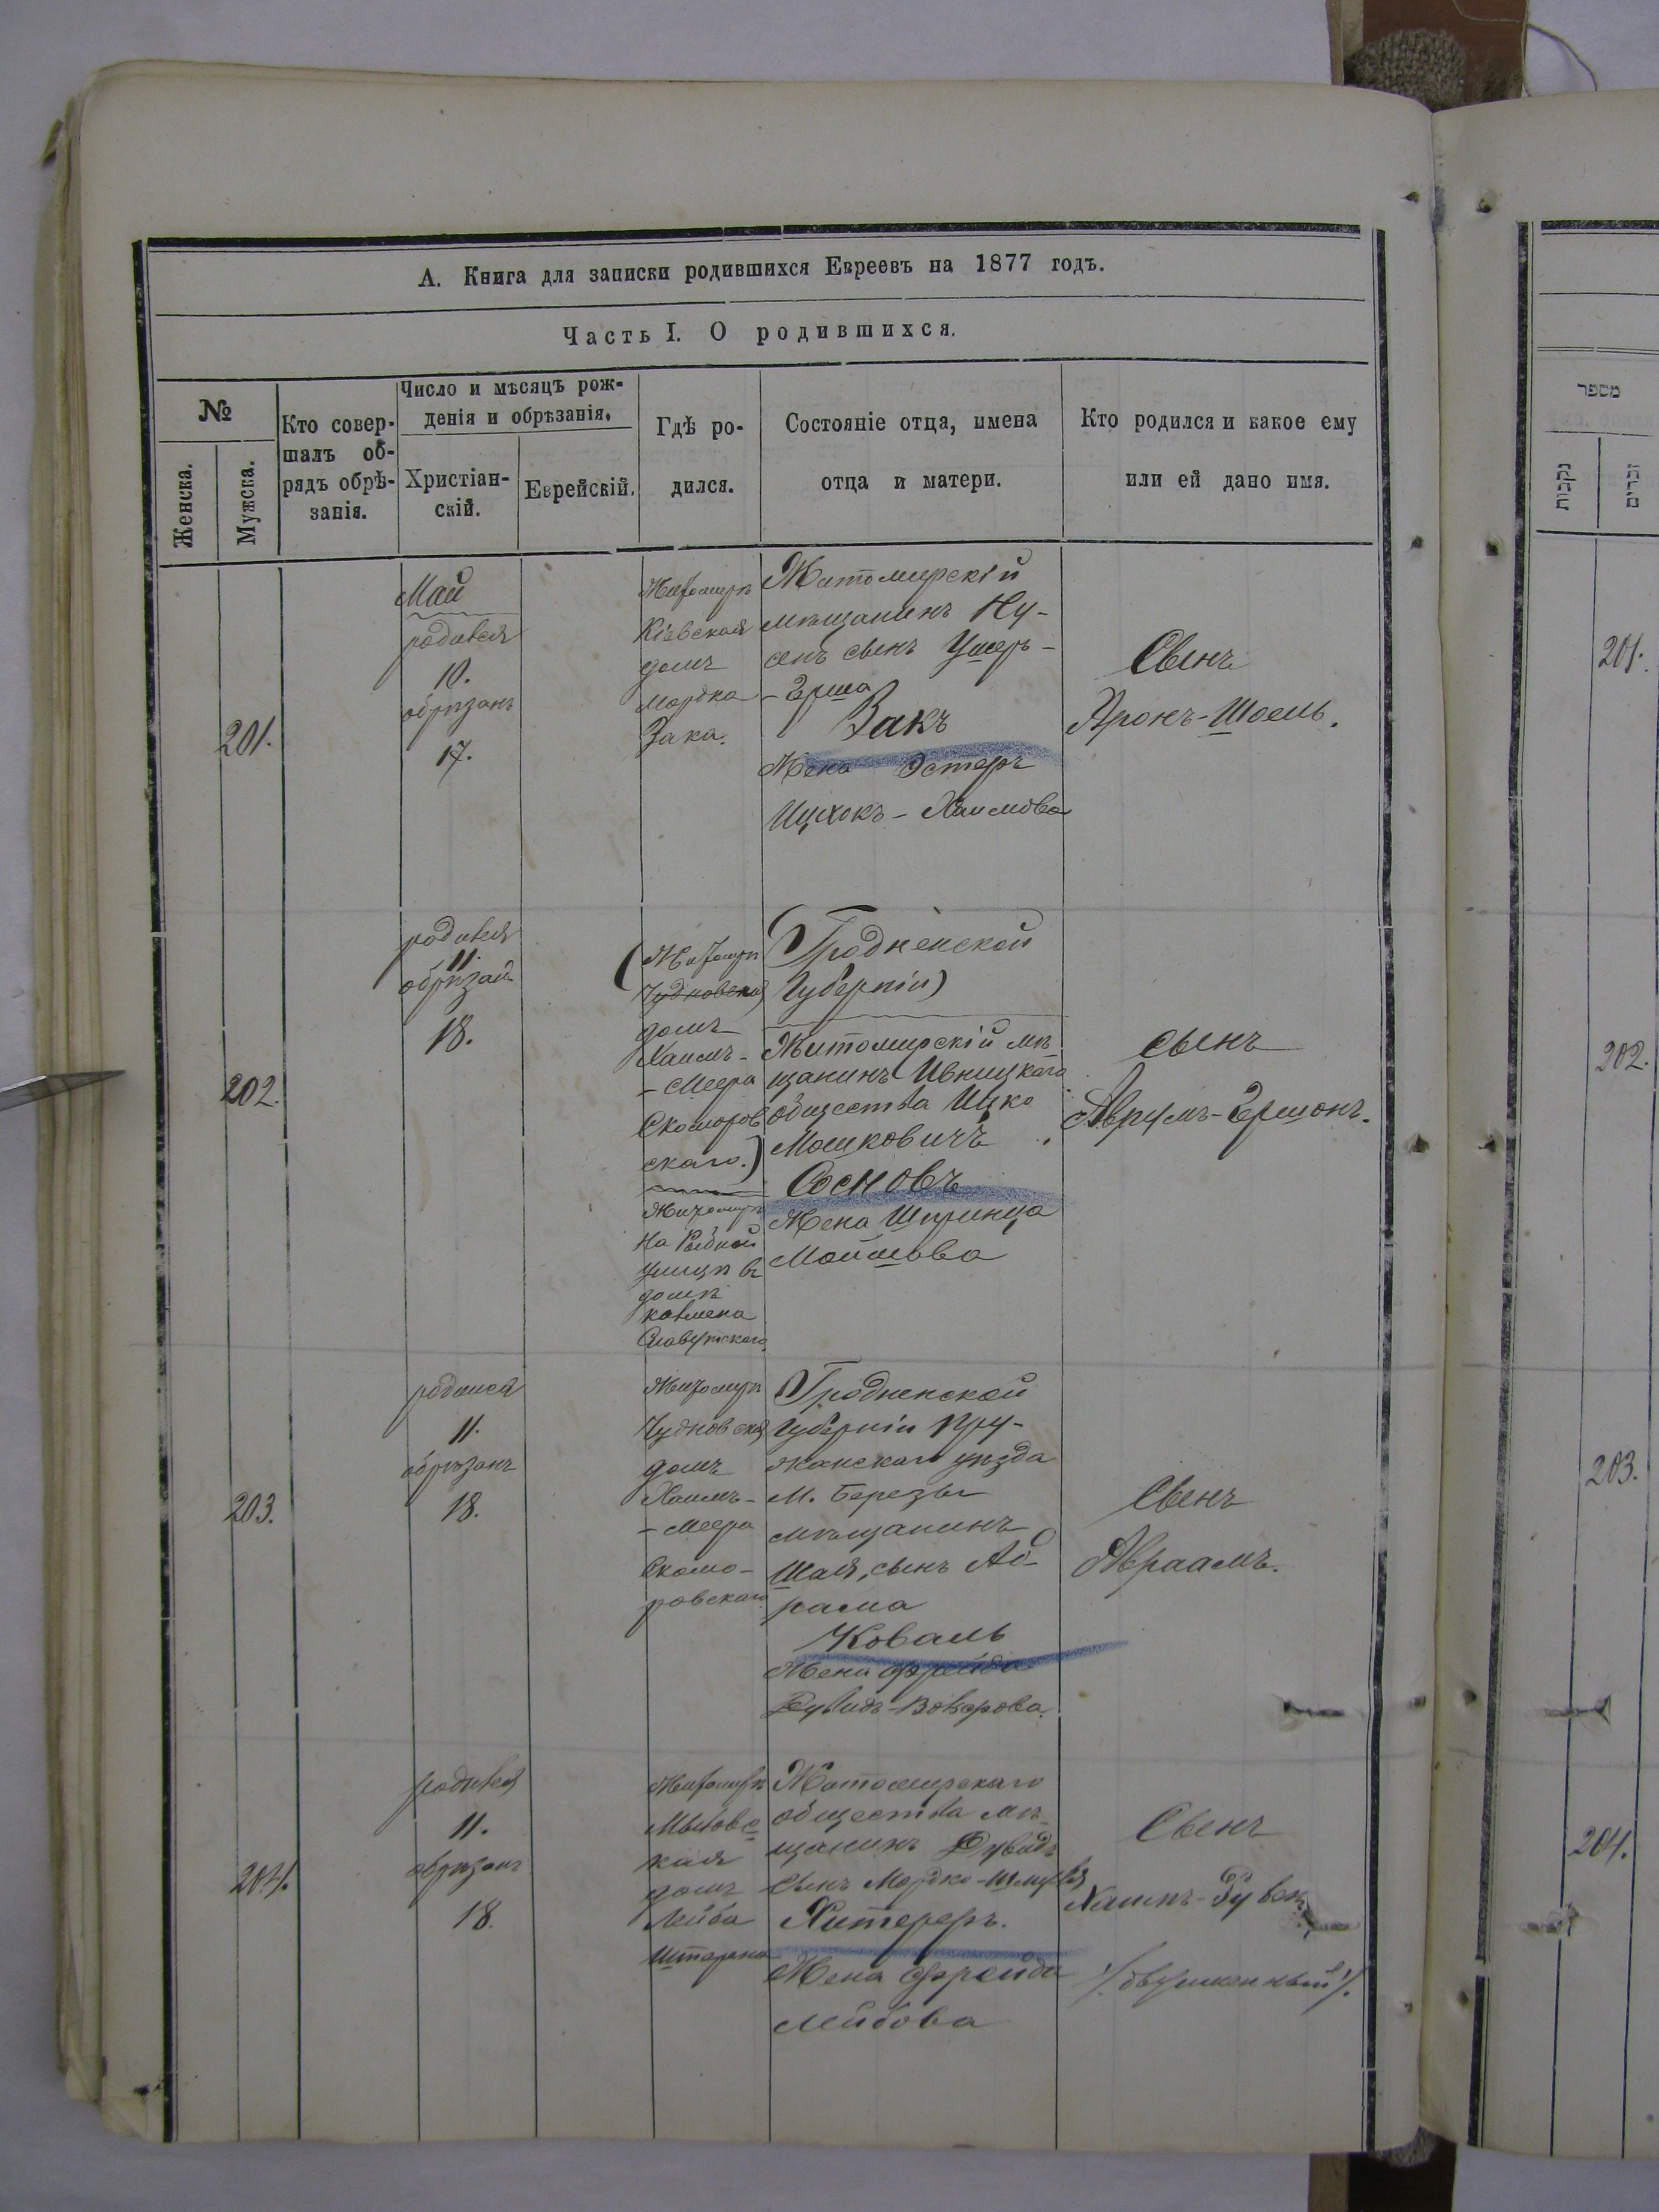 А. Книга для записки родившихся Евреевъ на 1877 годъ.
Часть I. О родившихся.
№
Женска.
Мужска.
Кто совер-
шалъ об-
рядъ обрѣ-
занія.
Число и мѣсяцъ рож-
денія и обрѣзанія.
Христіан-
скій.
Еврейскій.
Гдѣ ро-
дился.
Состояніе отца, имена
отца и матери.
Кто родился и какое ему
или ей дано имя.
201.
Май
родился
10.
обрѣзанъ
17.
Житомиръ
Кіевская
домъ
Мордка
Зака.
Житомирскій
мѣщанинъ Ну-
сенъ сынъ Ушеръ-
-Герша
Закъ
Жена Эстеръ
Ицхокъ-Хаимова
Сынъ
Аронъ-Шоель.
202.
родился
11.
обрѣзанъ
18.
(Житомиръ
Чудновская
домъ
Хаимъ-
-Меера
Скоморов
скаго.)
Житомиръ
На Рыбной
улицѣ въ
домѣ
Славутскаго
(Гродненской
Губерніи)
Житомирскій мѣ-
щанинъ Ивницкаго
общества Ицко
Мошковичъ
Сосновъ
Жена Шпринца
Мошкова
сынъ
Аврумъ-Гершонъ.
203.
родился
11.
обрѣзанъ
18.
Житомиръ
Чудновская
домъ
Хаимъ-
-Меера
Скомо-
ровскаго
Гродненской
Губерніи Пру-
жанскаго уѣзда
М. Березы
мѣщанинъ
Шая, сынъ Аб-
рама
Коваль
Жена Фрейда
Дувидъ-Воверова.
Сынъ
Авраамъ.
204.
родился
11.
обрѣзанъ
18.
Житомиръ
домъ
Лейба
Штерена
Житомирскаго
общества мѣ-
щанинъ Дувидъ
сынъ Мордко-Шмуля
Хитереръ.
Жена Фрейда
Лейбова
Сынъ
Хаимъ-Рувенъ
מספר
נקבות
זכרים
201.
202.
203.
204.